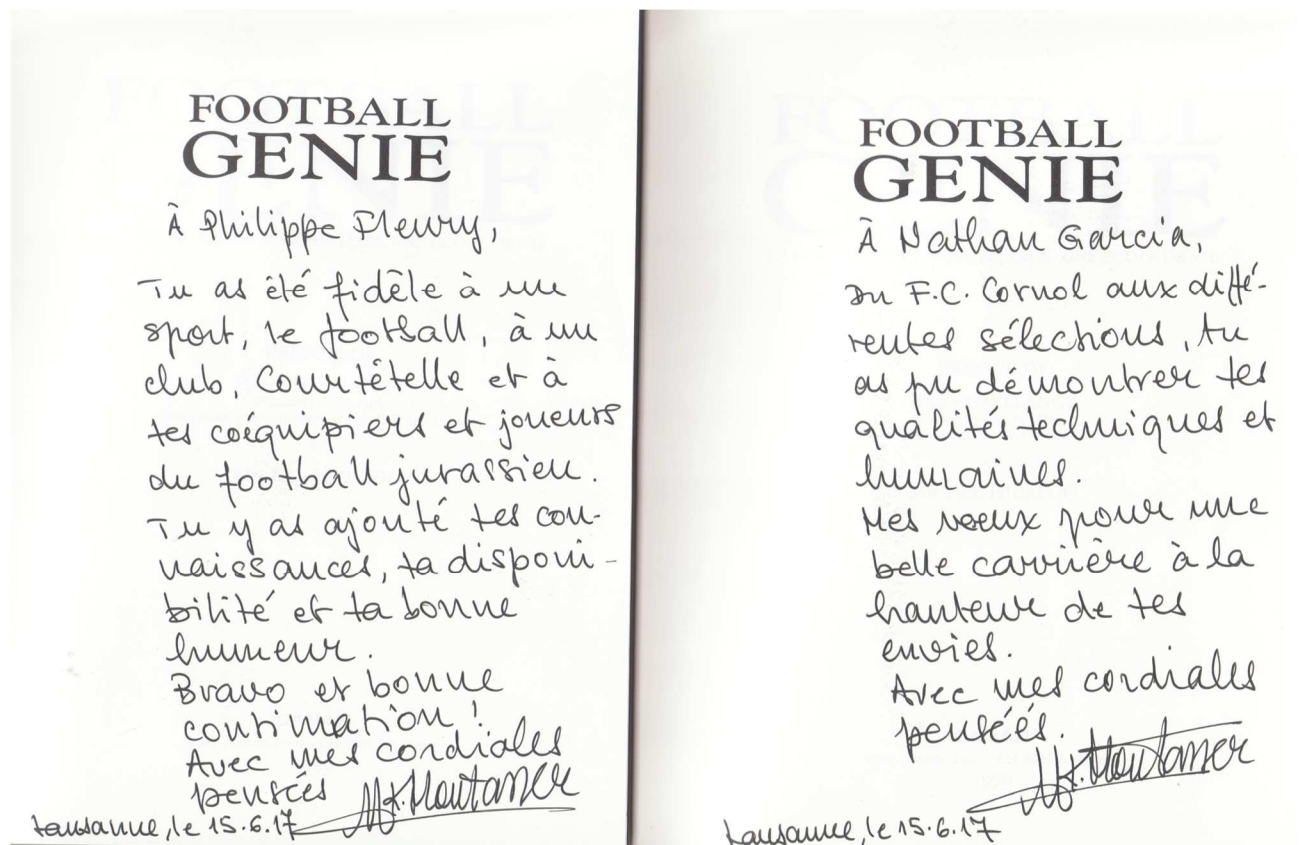 FOOTBALL
GENIE
À Philippe Fleury,
Tu as été fidèle à un
sport, le football, à un
club, Courtételle et à
tes coéquipiers et joueurs
du football jurassien.
Tu y as ajouté tes con-
naissances, ta disponi-
bilité et ta bonne
humeur.
Bravo et bonne
continuation !
Avec mes cordiales
pensées
Montaner
Lausanne, le 15.6.17
FOOTBALL
GENIE
À Nathan Garcia,
Du F.C. Cornol aux diffé-
rentes sélections, tu
as pu démontrer tes
qualités techniques et
humaines.
Mes voeux pour une
belle carrière à la
hauteur de tes
envies.
Avec mes cordiales
pensées.
Montaner
Lausanne, le 15.6.17